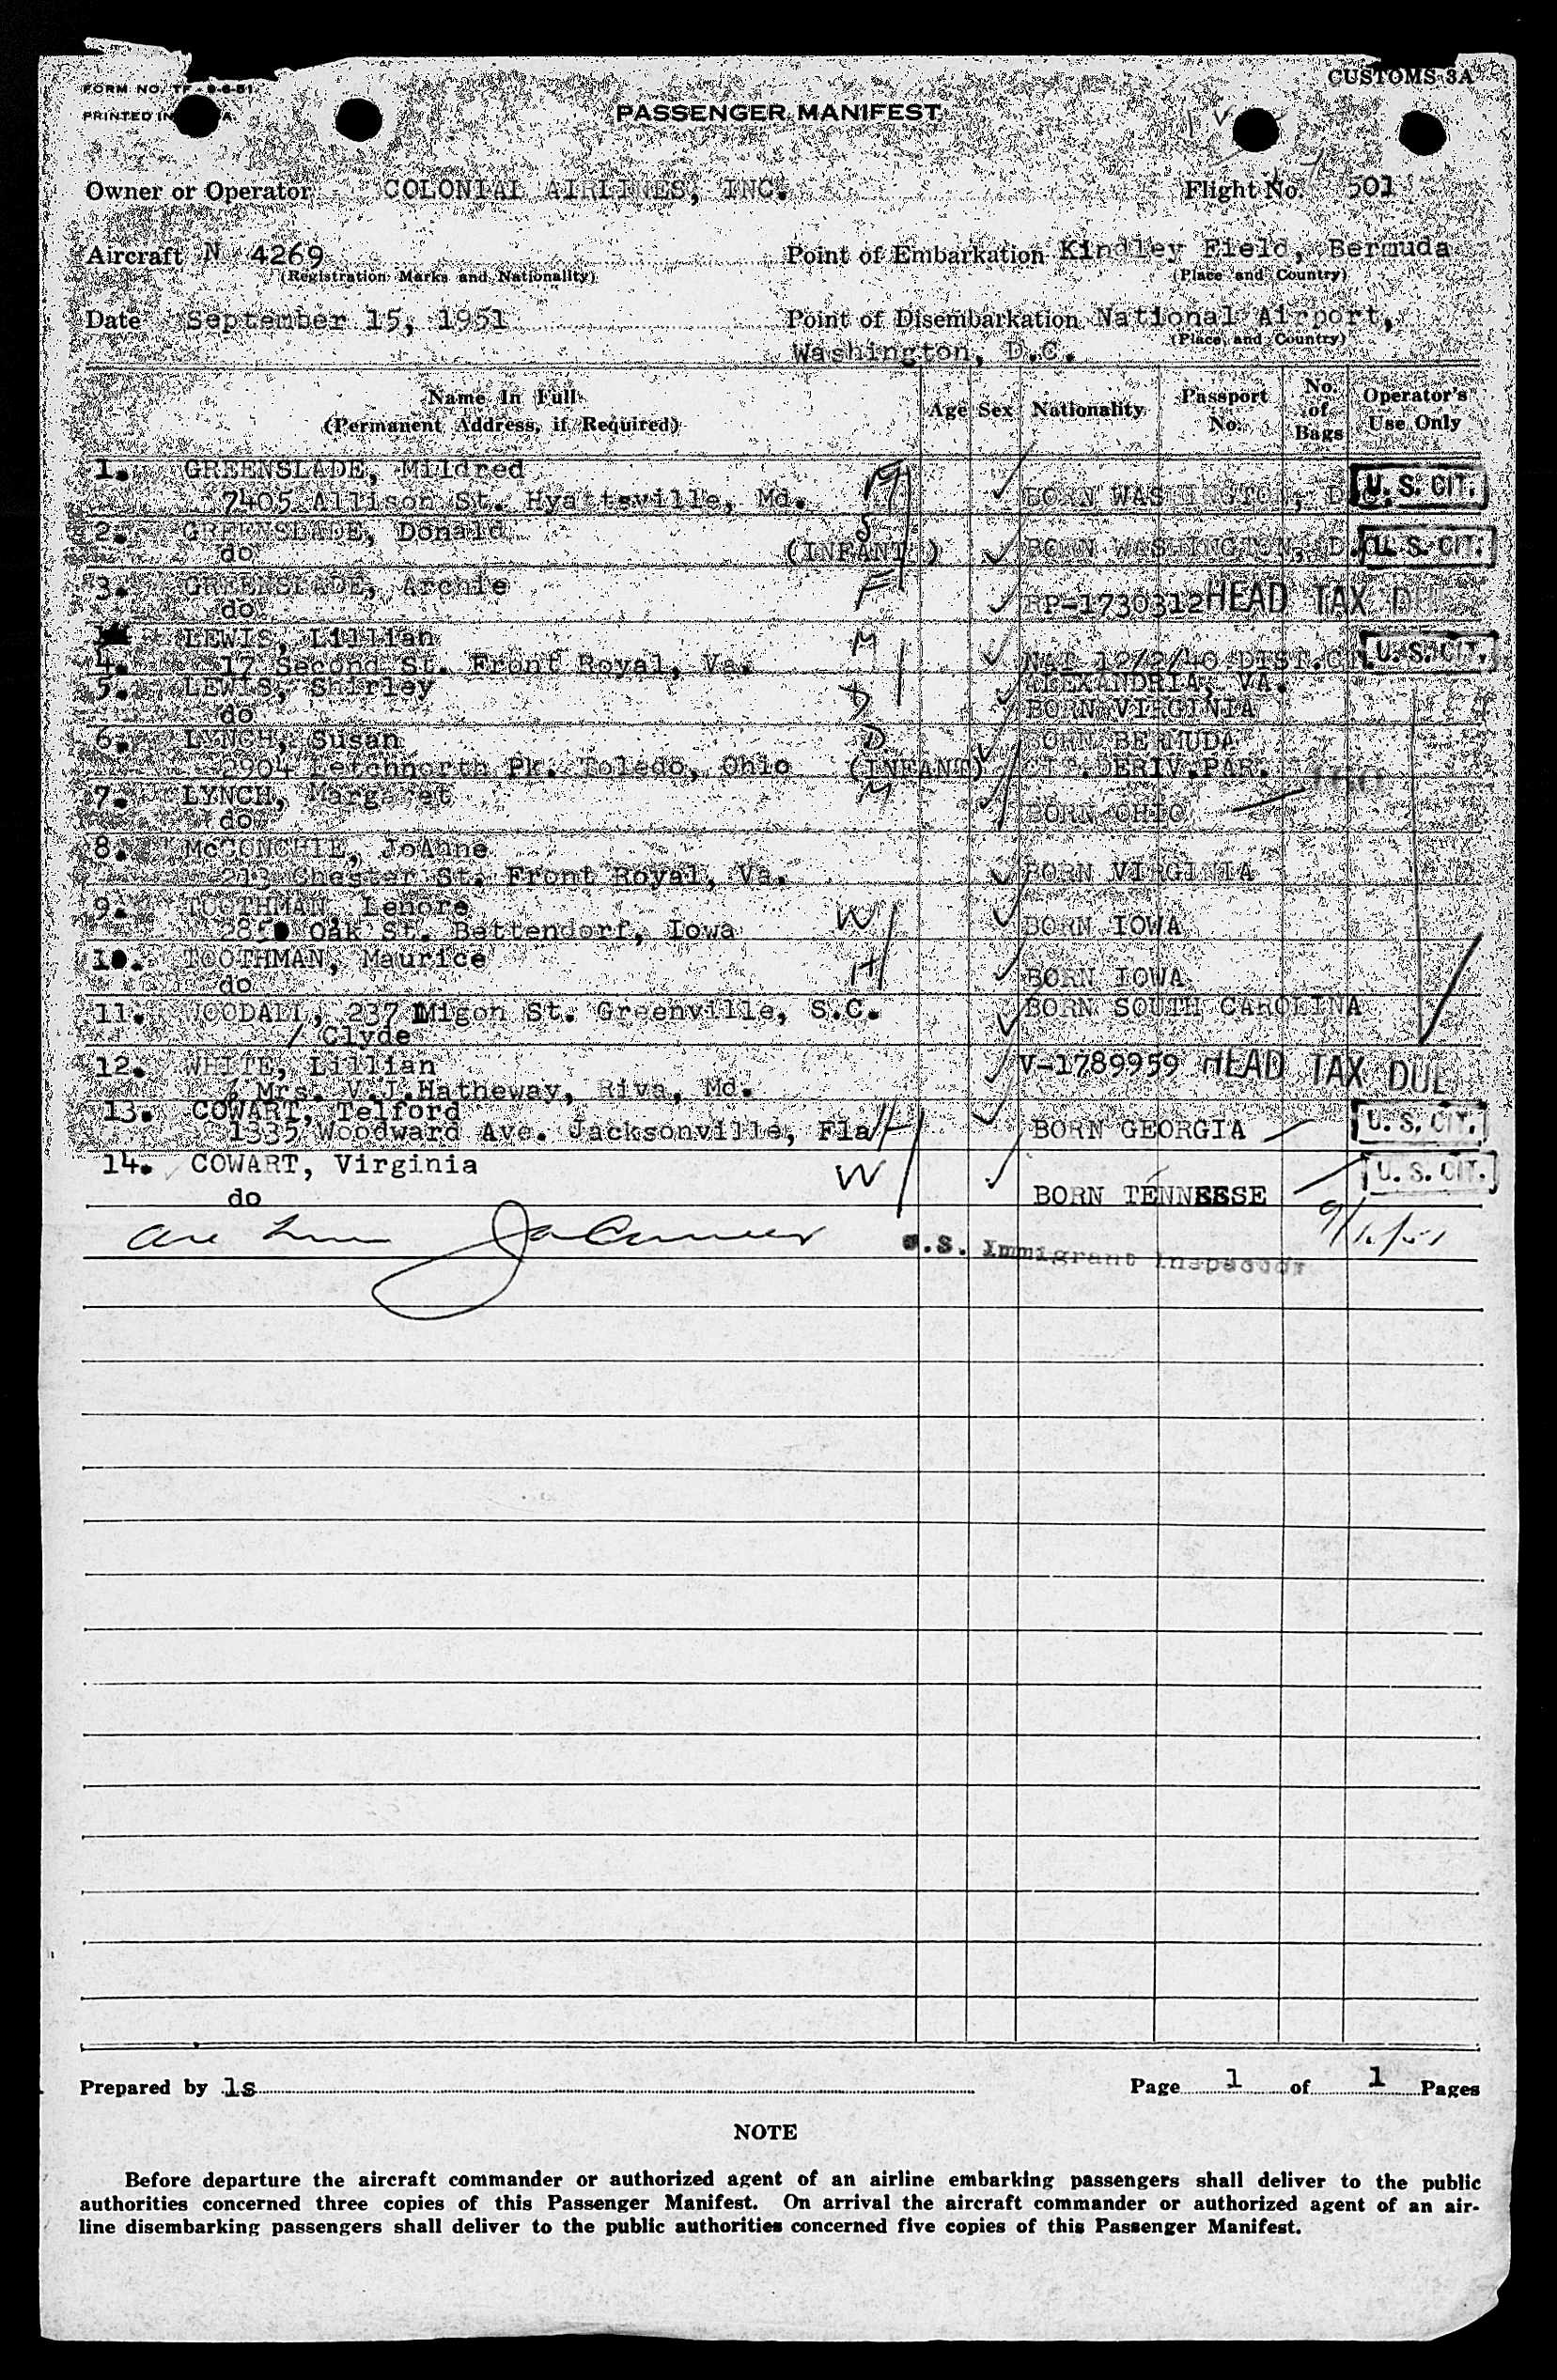 CUSTOMS 3A
FORM NO. TF - 9-6-51
PRINTED IN
PASSENGER MANIFEST
Owner or Operator COLONIAL AIRLINES, INC. Flight No. 501
Aircraft N 4269 Point of Embarkation Kindley Field, Bermuda
(Registration Marks and Nationality) (Place and Country)
Date September 15, 1951 Point of Disembarkation National Airport,
(Place and Country)
Washington, D.C.
Name In Full (Permanent Address, if Required) Age Sex Nationality Passport No. No. of Bags Operator's Use Only
1. GREENSLADE, Mildred M
7405 Allison St. Hyattsville, Md. BORN WASHINGTON, D U. S. CIT.
2. GREENSLADE, Donald S
do (INFANT ) BORN WASHINGTON, D. U. S. CIT.
3. GREENSLADE, Archie F
do RP-1730312 HEAD TAX DUE
LEWIS, Lillian M
4. 17 Second St. Front Royal, Va. NAT 12/2/40 DIST.C U. S. CIT.
5. LEWIS, Shirley D ALEXANDRIA, VA.
do BORN VIRGINIA
6. LYNCH, Susan D BORN BERMUDA
2904 Letchnorth Pk. Toledo, Ohio (INFANT) CIT.DERIV.PAR.
7. LYNCH, Margaret M
do BORN OHIO
8. McCONCHIE, JoAnne
213 Chester St. Front Royal, Va. BORN VIRGINIA
9. TOOTHMAN, Lenore W
Oak St. Bettendorf, Iowa BORN IOWA
10. TOOTHMAN, Maurice H
do BORN IOWA
11. WOODALL, 237 Migon St. Greenville, S.C. BORN SOUTH CAROLINA
/ Clyde
12. WHITE, Lillian V-1789959 HEAD TAX DUE
% Mrs. V.J.Hatheway, Riva, Md.
13. COWART, Telford
1335 Woodward Ave. Jacksonville, Fla H BORN GEORGIA U. S. CIT.
14. COWART, Virginia W U. S. CIT.
do BORN TENNEESSE
U.S. Immigrant Inspector
Prepared by ls Page 1 of 1 Pages
NOTE
Before departure the aircraft commander or authorized agent of an airline embarking passengers shall deliver to the public
authorities concerned three copies of this Passenger Manifest. On arrival the aircraft commander or authorized agent of an air-
line disembarking passengers shall deliver to the public authorities concerned five copies of this Passenger Manifest.